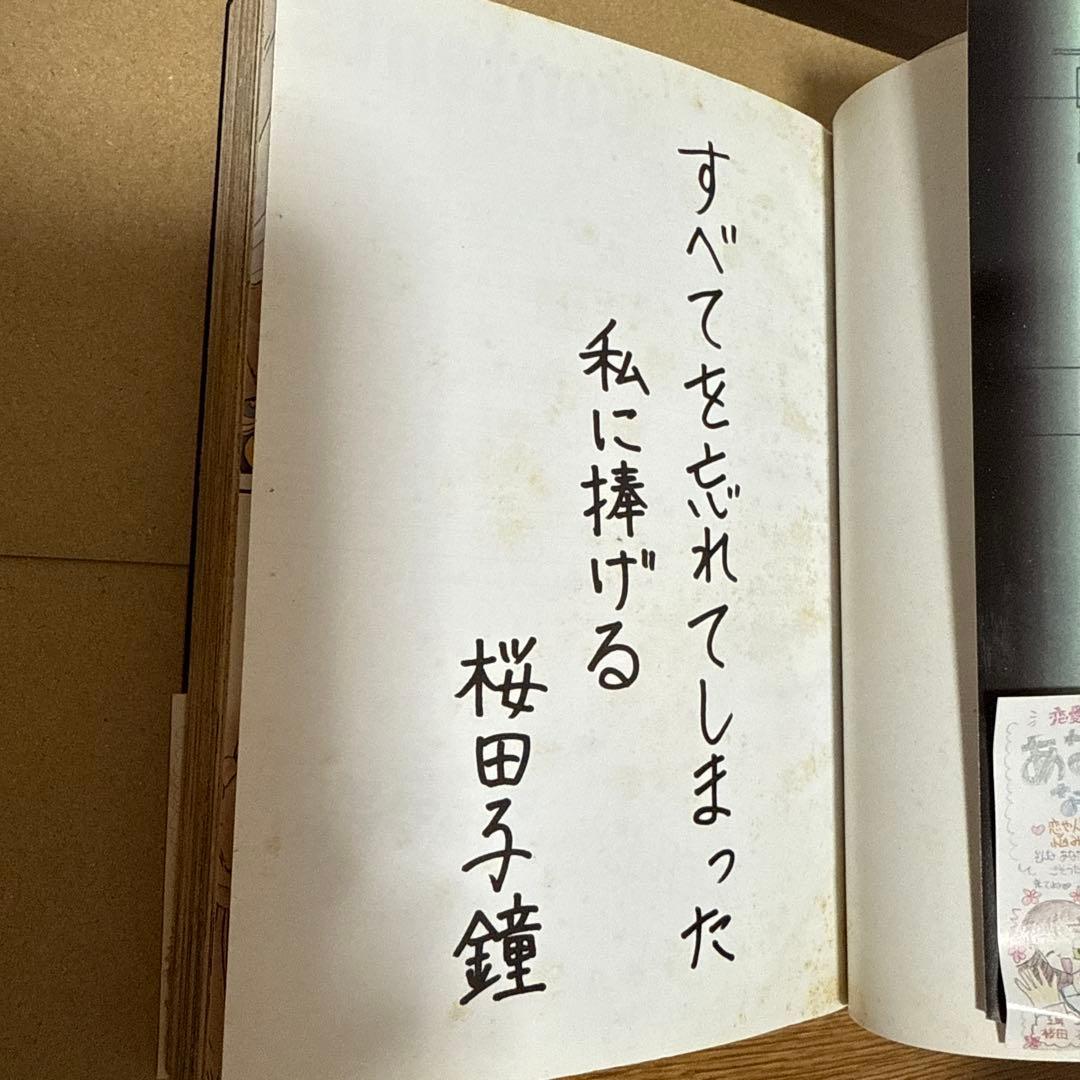 すべてを忘れてしまった
私に捧げる
桜田子鐘
恋愛
桜田